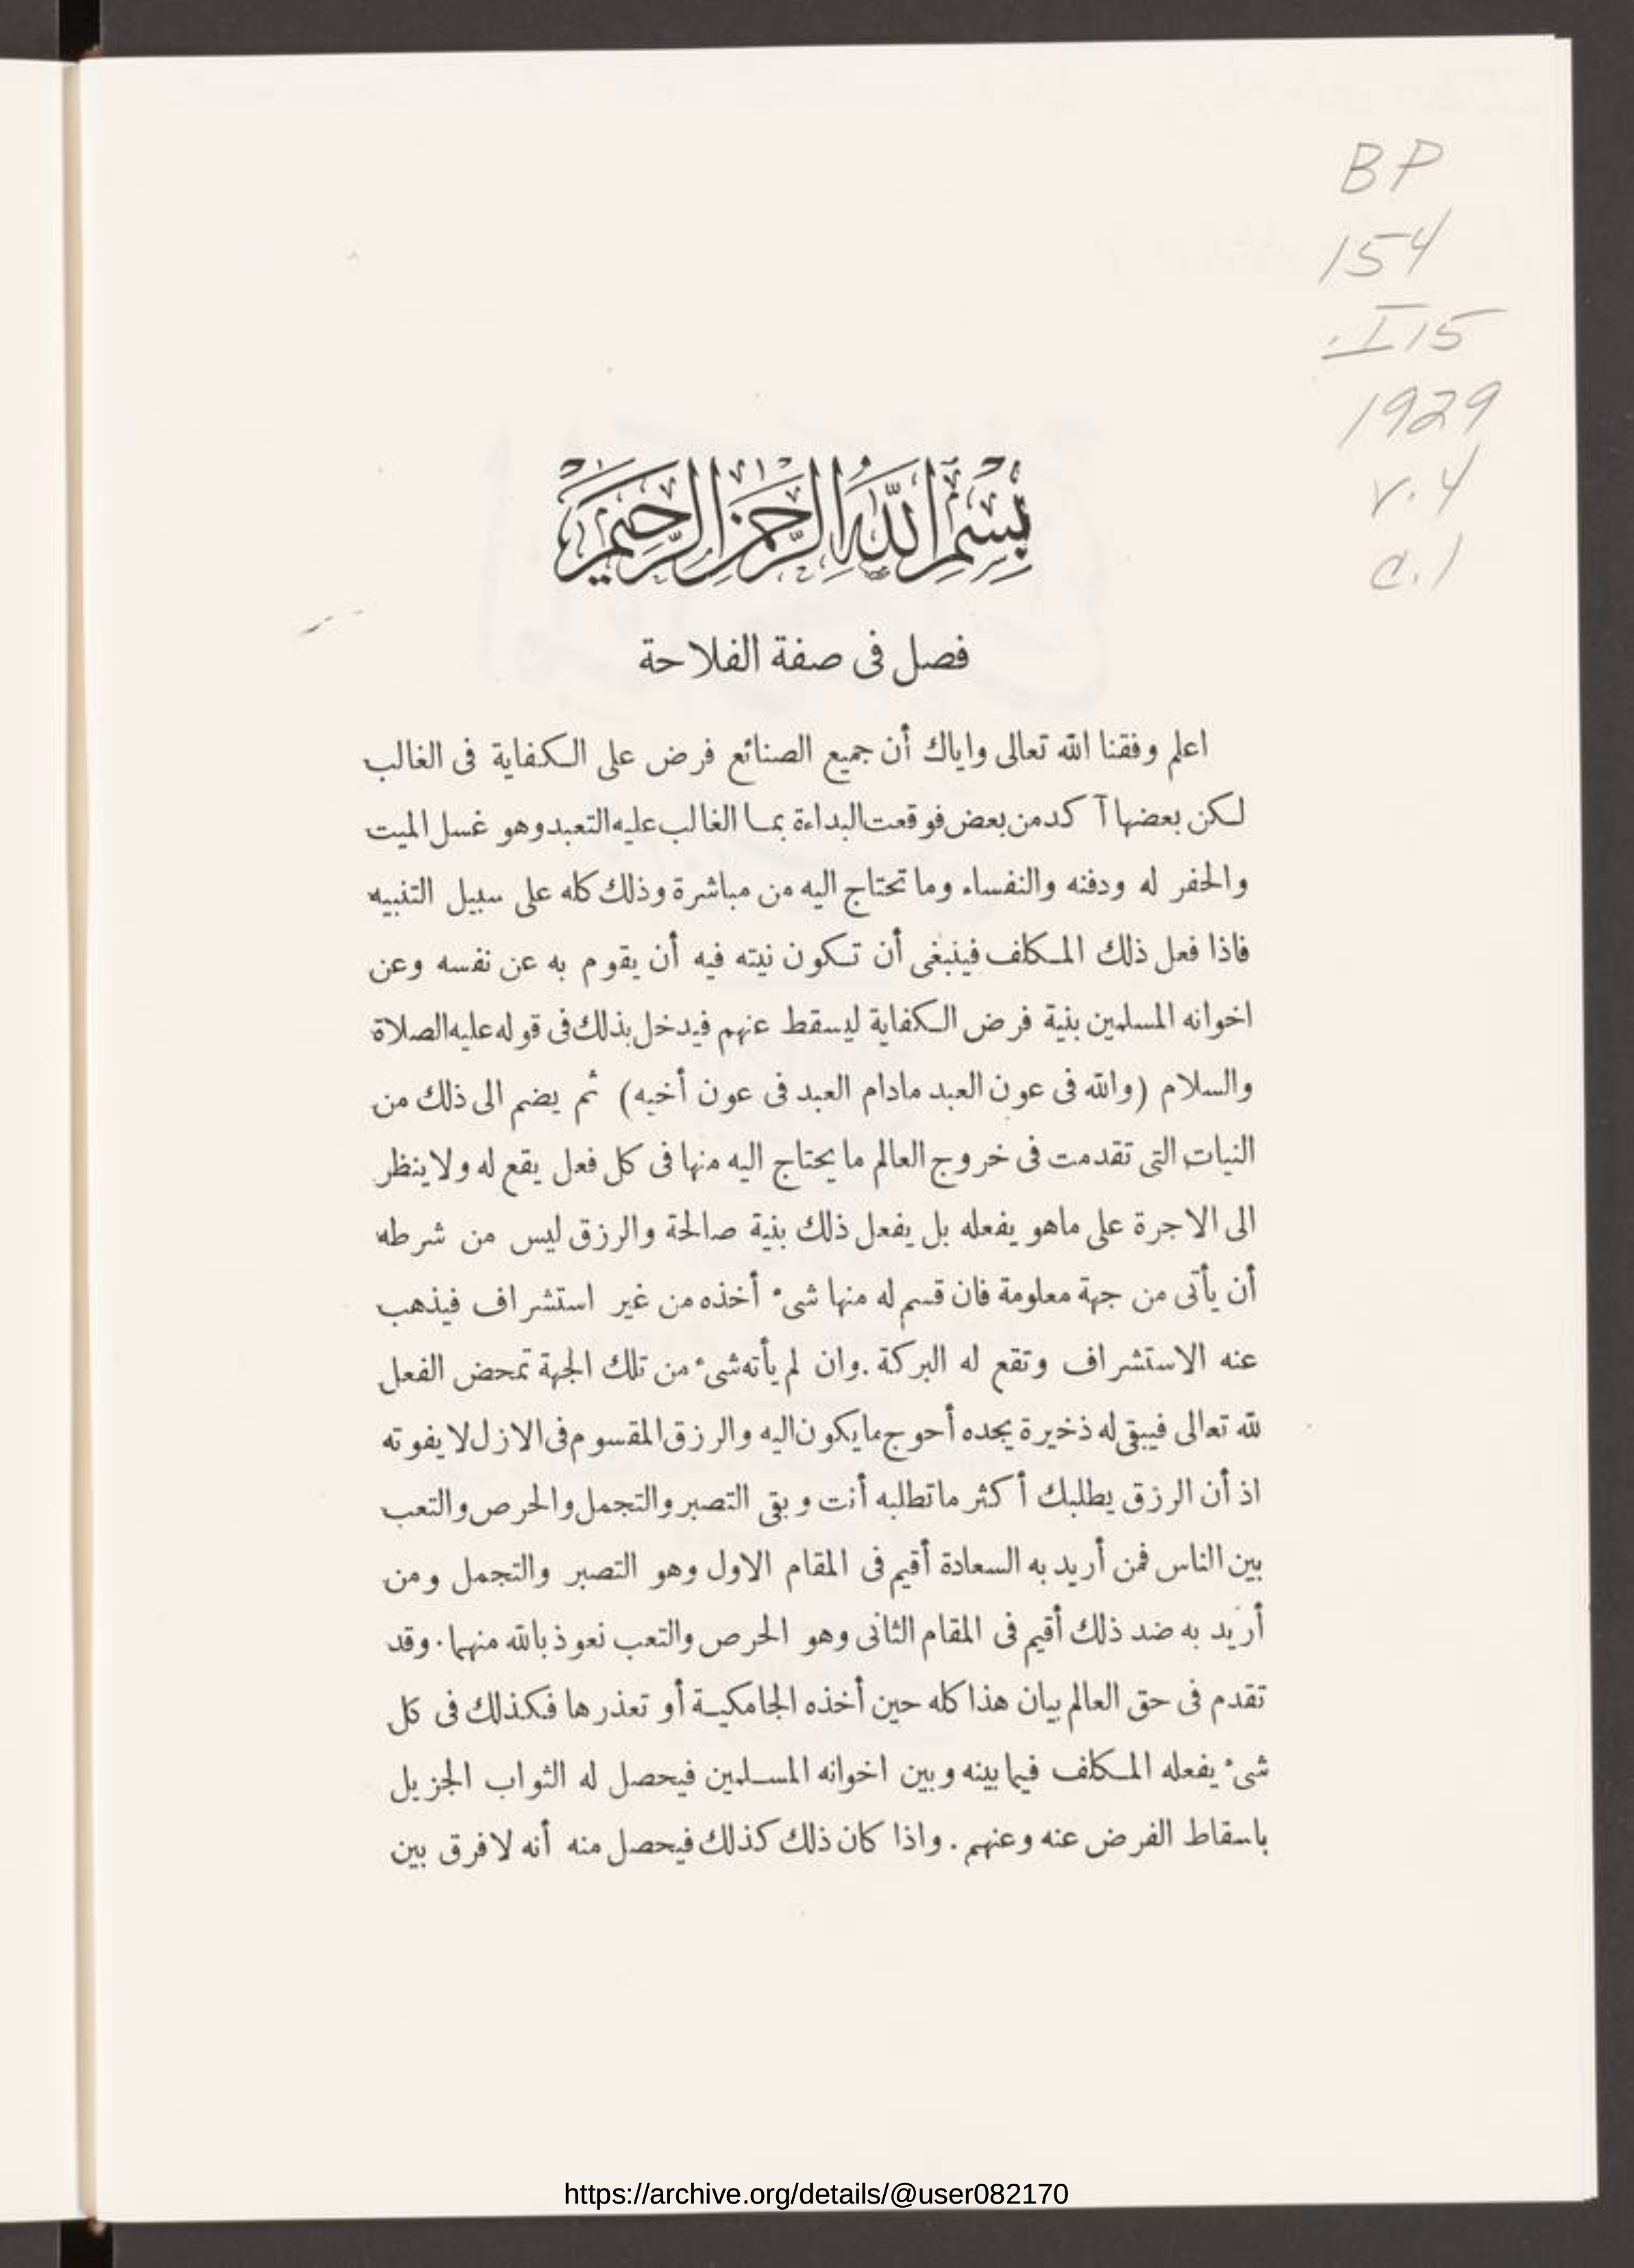 BP
154
.I15
1929
v.4
c.1
بِسْمِ اللَّهِ الرَّحْمَنِ الرَّحِيمِ
فصل فى صفة الفلاحة
اعلم وفقنا الله تعالى واياك أن جميع الصنائع فرض على الكفاية فى الغالب
لكن بعضها آكد من بعض فوقعت البداءة بما الغالب عليه التعبد وهو غسل الميت
والحفر له ودفنه والنفساء وما تحتاج اليه من مباشرة وذلك كله على سبيل التنبيه
فاذا فعل ذلك المكلف فينبغى أن تكون نيته فيه أن يقوم به عن نفسه وعن
اخوانه المسلمين بنية فرض الكفاية ليسقط عنهم فيدخل بذلك فى قوله عليه الصلاة
والسلام (والله فى عون العبد مادام العبد فى عون أخيه) ثم يضم الى ذلك من
النيات التى تقدمت فى خروج العالم ما يحتاج اليه منها فى كل فعل يقع له ولا ينظر
الى الاجرة على ماهو يفعله بل يفعل ذلك بنية صالحة والرزق ليس من شرطه
أن يأتى من جهة معلومة فان قسم له منها شىء أخذه من غير استشراف فيذهب
عنه الاستشراف وتقع له البركة . وان لم يأته شىء من تلك الجهة تمحض الفعل
لله تعالى فيبقى له ذخيرة يجده أحوج ما يكون اليه والرزق المقسوم فى الازل لا يفوته
اذ أن الرزق يطلبك أكثر ما تطلبه أنت وبقى التصبر والتجمل والحرص والتعب
بين الناس فمن أريد به السعادة أقيم فى المقام الاول وهو التصبر والتجمل ومن
أريد به ضد ذلك أقيم فى المقام الثانى وهو الحرص والتعب نعوذ بالله منهما . وقد
تقدم فى حق العالم بيان هذا كله حين أخذه الجامكية أو تعذرها فكذلك فى كل
شىء يفعله المكلف فيما بينه وبين اخوانه المسلمين فيحصل له الثواب الجزيل
باسقاط الفرض عنه وعنهم . واذا كان ذلك كذلك فيحصل منه أنه لافرق بين
https://archive.org/details/@user082170